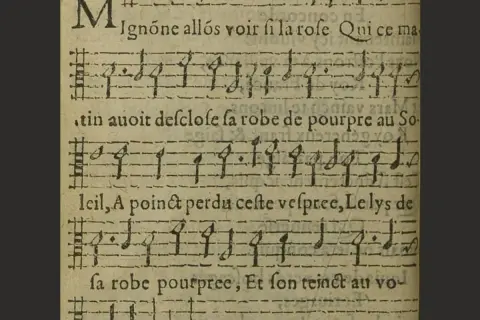 MIgnōne allós voir si la rose Qui ce ma-
tin auoit desclose sa robe de pourpre au So-
leil, A poinct perdu ceste vespree, Le lys de
sa robe pourpree, Et son teinct au vo-